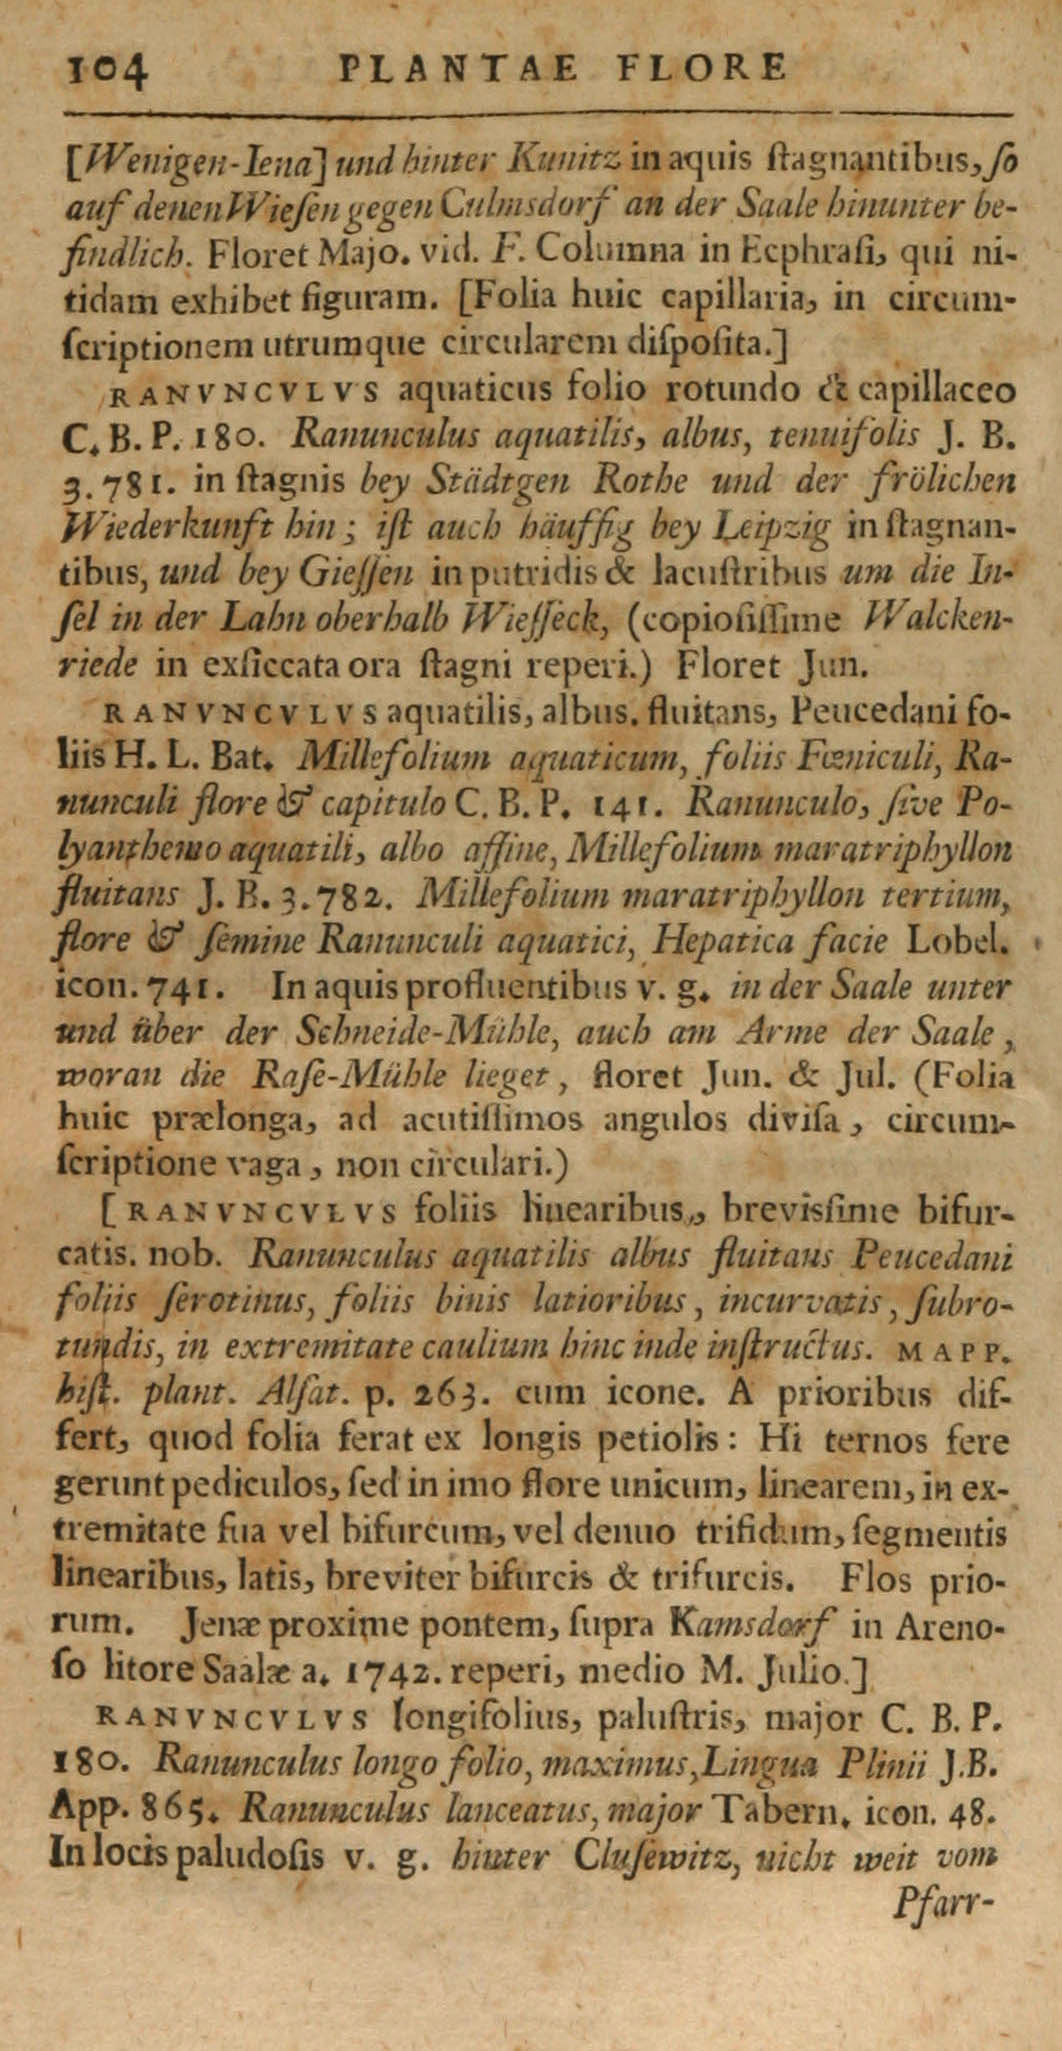 104 PLANTAE FLORE
[Wenigen-Iena] und hinter Kunitz in aquis ſtagnantibus, ſo
auf denen Wieſen gegen Culmsdorf an der Saale hinunter be-
findlich. Floret Majo. vid. F. Columna in Ecphraſi, qui ni-
tidam exhibet figuram. [Folia huic capillaria, in circum-
ſcriptionem utrumque circularem diſpoſita.]
RANVNCVLVS aquaticus folio rotundo & capillaceo
C. B. P. 180. Ranunculus aquatilis, albus, tenuifolis J. B.
3. 781. in ſtagnis bey Städtgen Rothe und der frölichen
Wiederkunft hin; iſt auch häuffig bey Leipzig in ſtagnan-
tibus, und bey Gieſſen in putridis & lacuſtribus um die In-
ſel in der Lahn oberhalb Wieſſeck, (copioſiſſime Walcken-
riede in exſiccata ora ſtagni reperi.) Floret Jun.
RANVNCVLVS aquatilis, albus. fluitans, Peucedani fo-
liis H. L. Bat. Millefolium aquaticum, foliis Fœniculi, Ra-
nunculi flore & capitulo C. B. P. 141. Ranunculo, ſive Po-
lyanthemo aquatili, albo affine, Millefolium maratriphyllon
fluitans J. B. 3. 782. Millefolium maratriphyllon tertium,
flore & ſemine Ranunculi aquatici, Hepatica facie Lobel.
icon. 741. In aquis profluentibus v. g. in der Saale unter
und über der Schneide-Mühle, auch am Arme der Saale,
woran die Raſe-Mühle lieget, floret Jun. & Jul. (Folia
huic prælonga, ad acutiſſimos angulos diviſa, circum-
ſcriptione vaga, non circulari.)
[RANVNCVLVS foliis linearibus, breviſſime bifur-
catis. nob. Ranunculus aquatilis albus fluitans Peucedani
foliis ſerotinus, foliis binis latioribus, incurvatis, ſubro-
tundis, in extremitate caulium hinc inde inſtructus. MAPP.
hiſt. plant. Alſat. p. 263. cum icone. A prioribus dif-
fert, quod folia ferat ex longis petiolis: Hi ternos fere
gerunt pediculos, ſed in imo flore unicum, linearem, in ex-
tremitate ſua vel bifurcum, vel denuo trifidum, ſegmentis
linearibus, latis, breviter bifurcis & trifurcis. Flos prio-
rum. Jenæ proxime pontem, ſupra Kamsdorf in Areno-
ſo litore Saalæ a. 1742. reperi, medio M. Julio.]
RANVNCVLVS longifolius, paluſtris, major C. B. P.
180. Ranunculus longo folio, maximus, Lingua Plinii J.B.
App. 865. Ranunculus lanceatus, major Tabern. icon. 48.
In locis paludoſis v. g. hinter Cluſewitz, nicht weit vom
Pfarr-